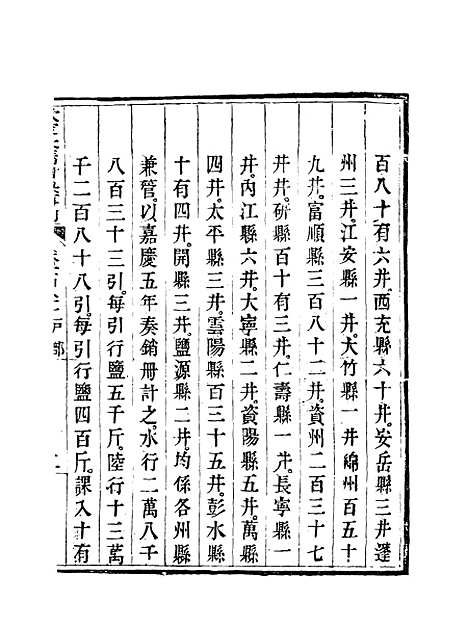 百八十有六井。西充縣六十井。安岳縣三井蓬
州三井。江安縣一井。大竹縣一井綿州百五十
九井。富順縣三百八十二井。資州二百三十七
井。井研縣百十有三井。仁壽縣一井。長寧縣一
井。內江縣六井。大寧縣二井。資陽縣五井。萬縣
四井。太平縣三井。雲陽縣百三十五井。彭水縣
十有四井。開縣三井。鹽源縣二井。均係各州縣
兼管。以嘉慶五年奏銷冊計之。水行二萬八千
八百三十三引。每引行鹽五千斤。陸行十三萬
千二百八十八引。每引行鹽四百斤。課入十有
戶部